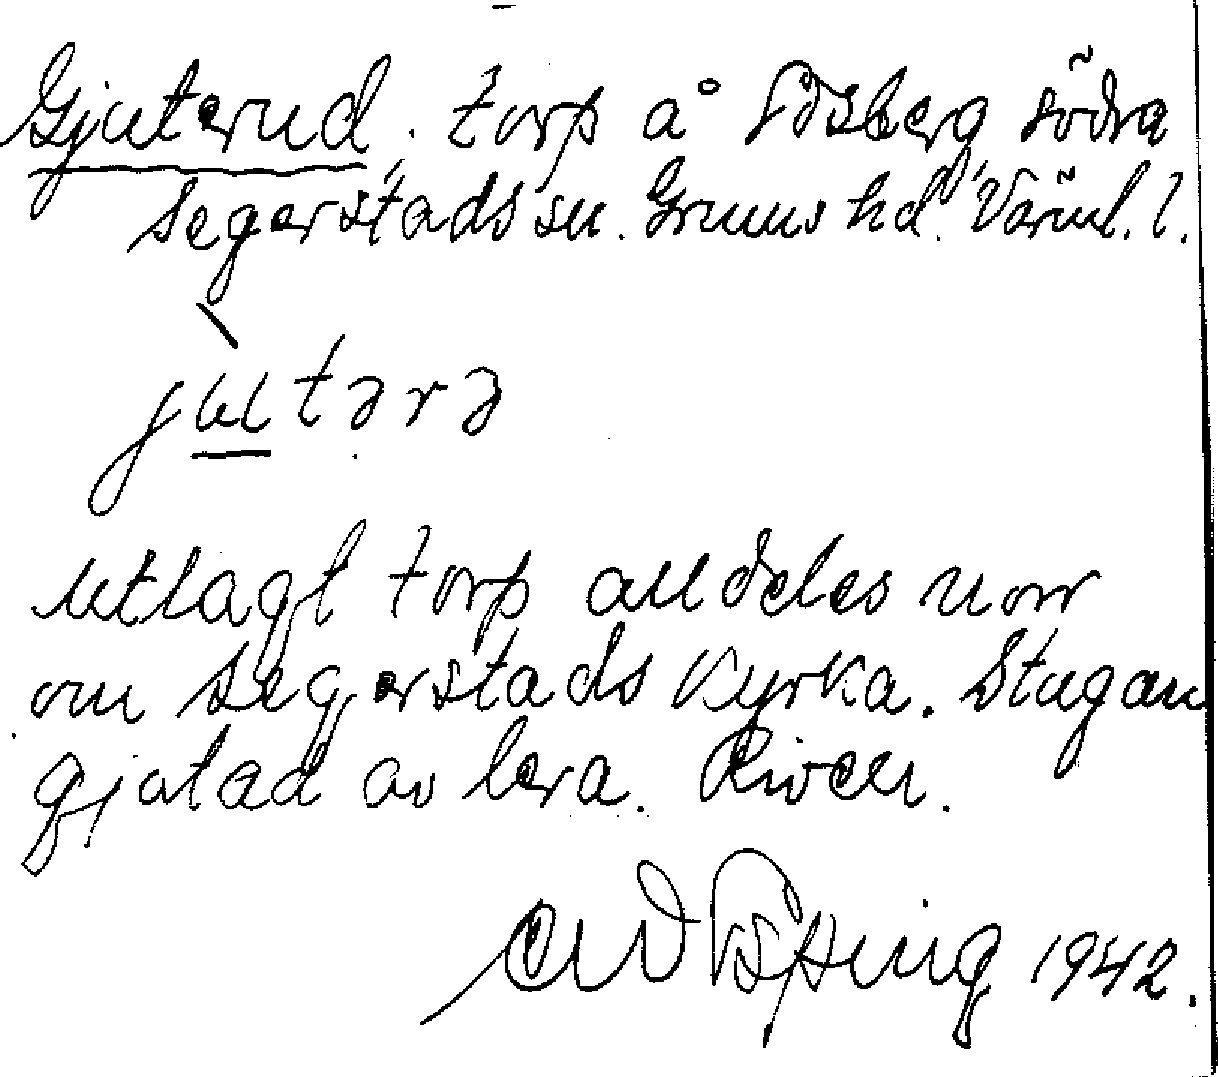 Gjuterud, torp å Edsberg södra
Segerstads sn. Grums hd. Värml. l.
jutərə
Utlagt torp alldeles norr
om Segerstads Kyrka. Stugan
gjutad av lera. Riven.
1942.